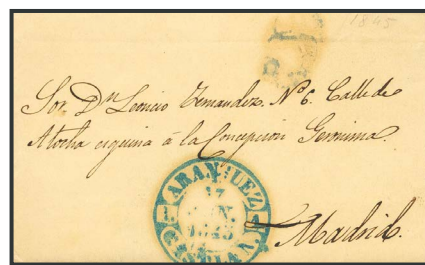 1845
Sor. Dn Leoncio Fernandez. Nº 6. Calle de
Atocha esquina à la Concepcion Geronima.
ARANJUEZ
17
1845
CAST. LA N.
Madrid.